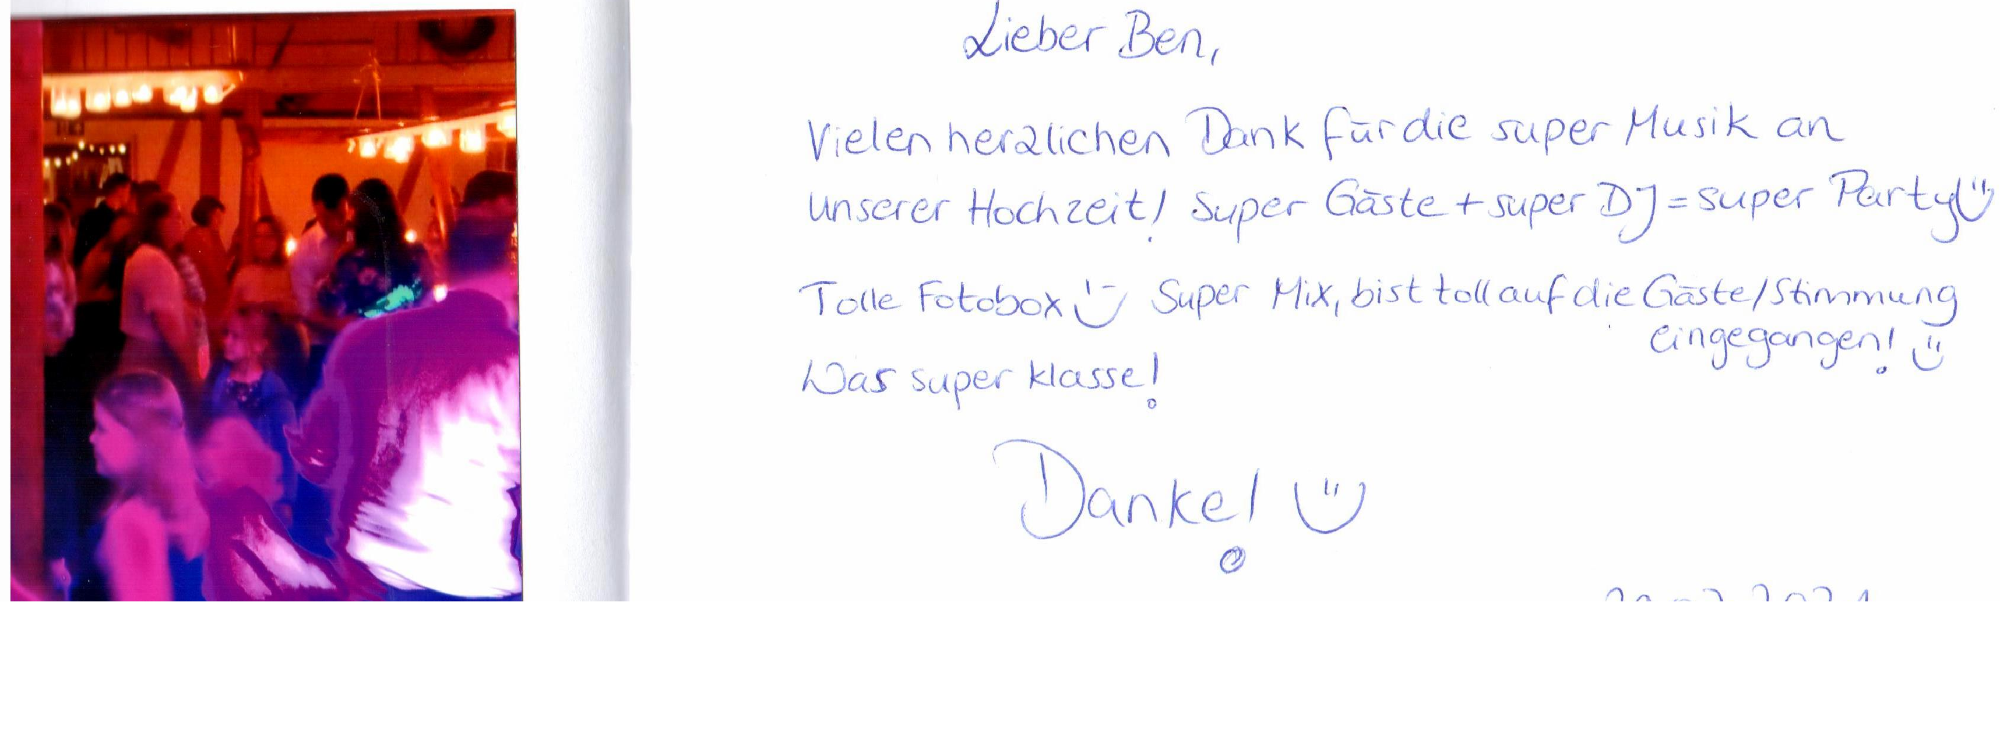 Lieber Ben,
Vielen herzlichen Dank für die super Musik an
unserer Hochzeit! Super Gäste + super DJ = super Party
Tolle Fotobox Super Mix, bist toll auf die Gäste/Stimmung
eingegangen!
Was super klasse!
Danke!